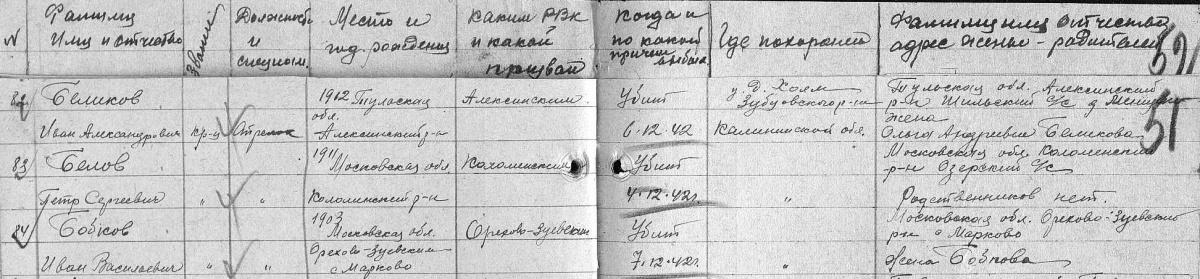 N Фамилия Имя и отчество Звание Должность и специальн. Место и год рождения каким РВК и какой призван Когда и по какой причине выбыл Где похоронен Фамилия имя отчество адрес жены - родителей
82 Беликов 1912 Тульская обл. Алексинским Убит у д. Холм Зубцовского р-н Тульская обл. Алексинский р-н Шильский с/с д
жена
Иван Александрович кр-ц Стрелок Алексинский р-н 6.12.42 Калининской обл. Ольга Андреевна Беликова
83 Белов 1911 Московская обл. Коломенским Убит Московская обл. Коломенский р-н Озерский с/с
Петр Сергеевич " " Коломенский р-н 4.12.42г. " Родственников нет.
84 Бобков 1903 Московская обл. Орехово-Зуевским Убит Московская обл. Орехово-Зуевский р-н с Марково
Иван Васильевич " " Орехово-Зуевским с Марково 7.12.42г. " Жена Бобкова
51